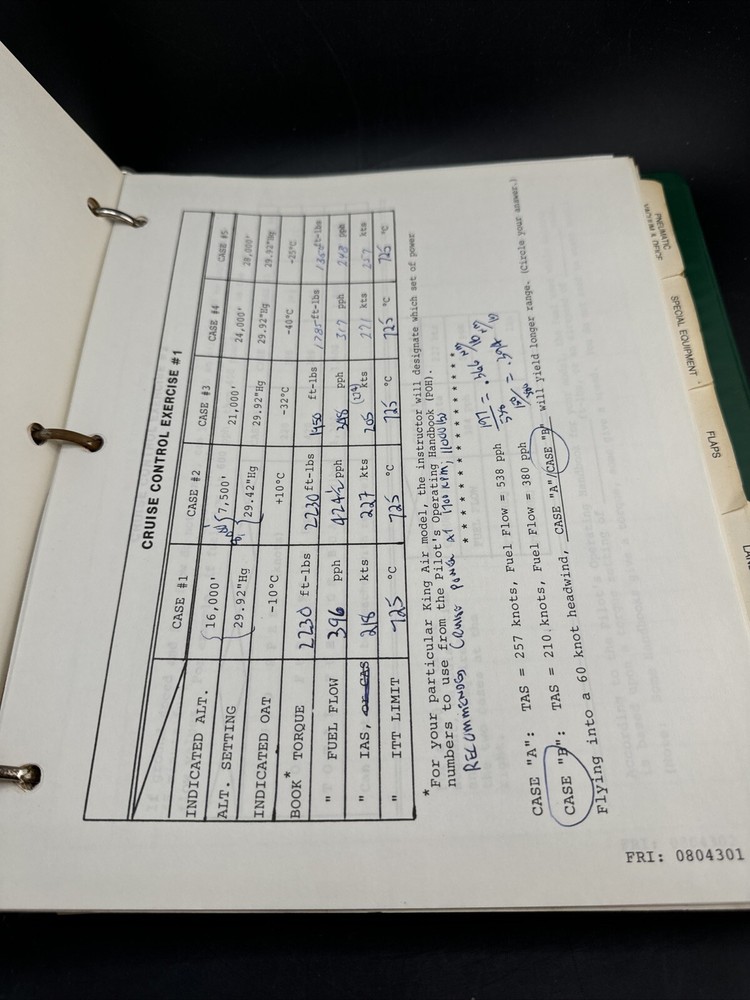 CRUISE CONTROL EXERCISE #1
CASE #1 CASE #2 CASE #3 CASE #4 CASE #5
INDICATED ALT. 16,000' 7,500' 21,000' 24,000' 28,000'
ALT. SETTING 29.92"Hg 29.42"Hg 29.92"Hg 29.92"Hg 29.92"Hg
INDICATED OAT -10°C +10°C -32°C -40°C -25°C
BOOK* TORQUE 2230 ft-lbs 2230 ft-lbs 1950 ft-lbs 1785 ft-lbs ft-lbs
" FUEL FLOW 396 pph 424½ pph pph pph 248 pph
" IAS, OR CAS 218 kts 227 kts 205 kts kts kts
" ITT LIMIT 725 °C 725 °C 725 °C 725 °C 725 °C
*For your particular King Air model, the instructor will designate which set of power
numbers to use from the Pilot's Operating Handbook (POH).
RECOMMENDED CRUISE POWER AT 1700 RPM, 11000 lb
* * * * * * * * * * * * * * * *
CASE "A": TAS = 257 knots, Fuel Flow = 538 pph 197/538 = .366
CASE "B": TAS = 210 knots, Fuel Flow = 380 pph 150/380 = .394
Flying into a 60 knot headwind, CASE "A"/CASE "B" will yield longer range. (Circle your answer.)
FRI: 0804301
PNEUMATIC
SPECIAL EQUIPMENT
FLAPS